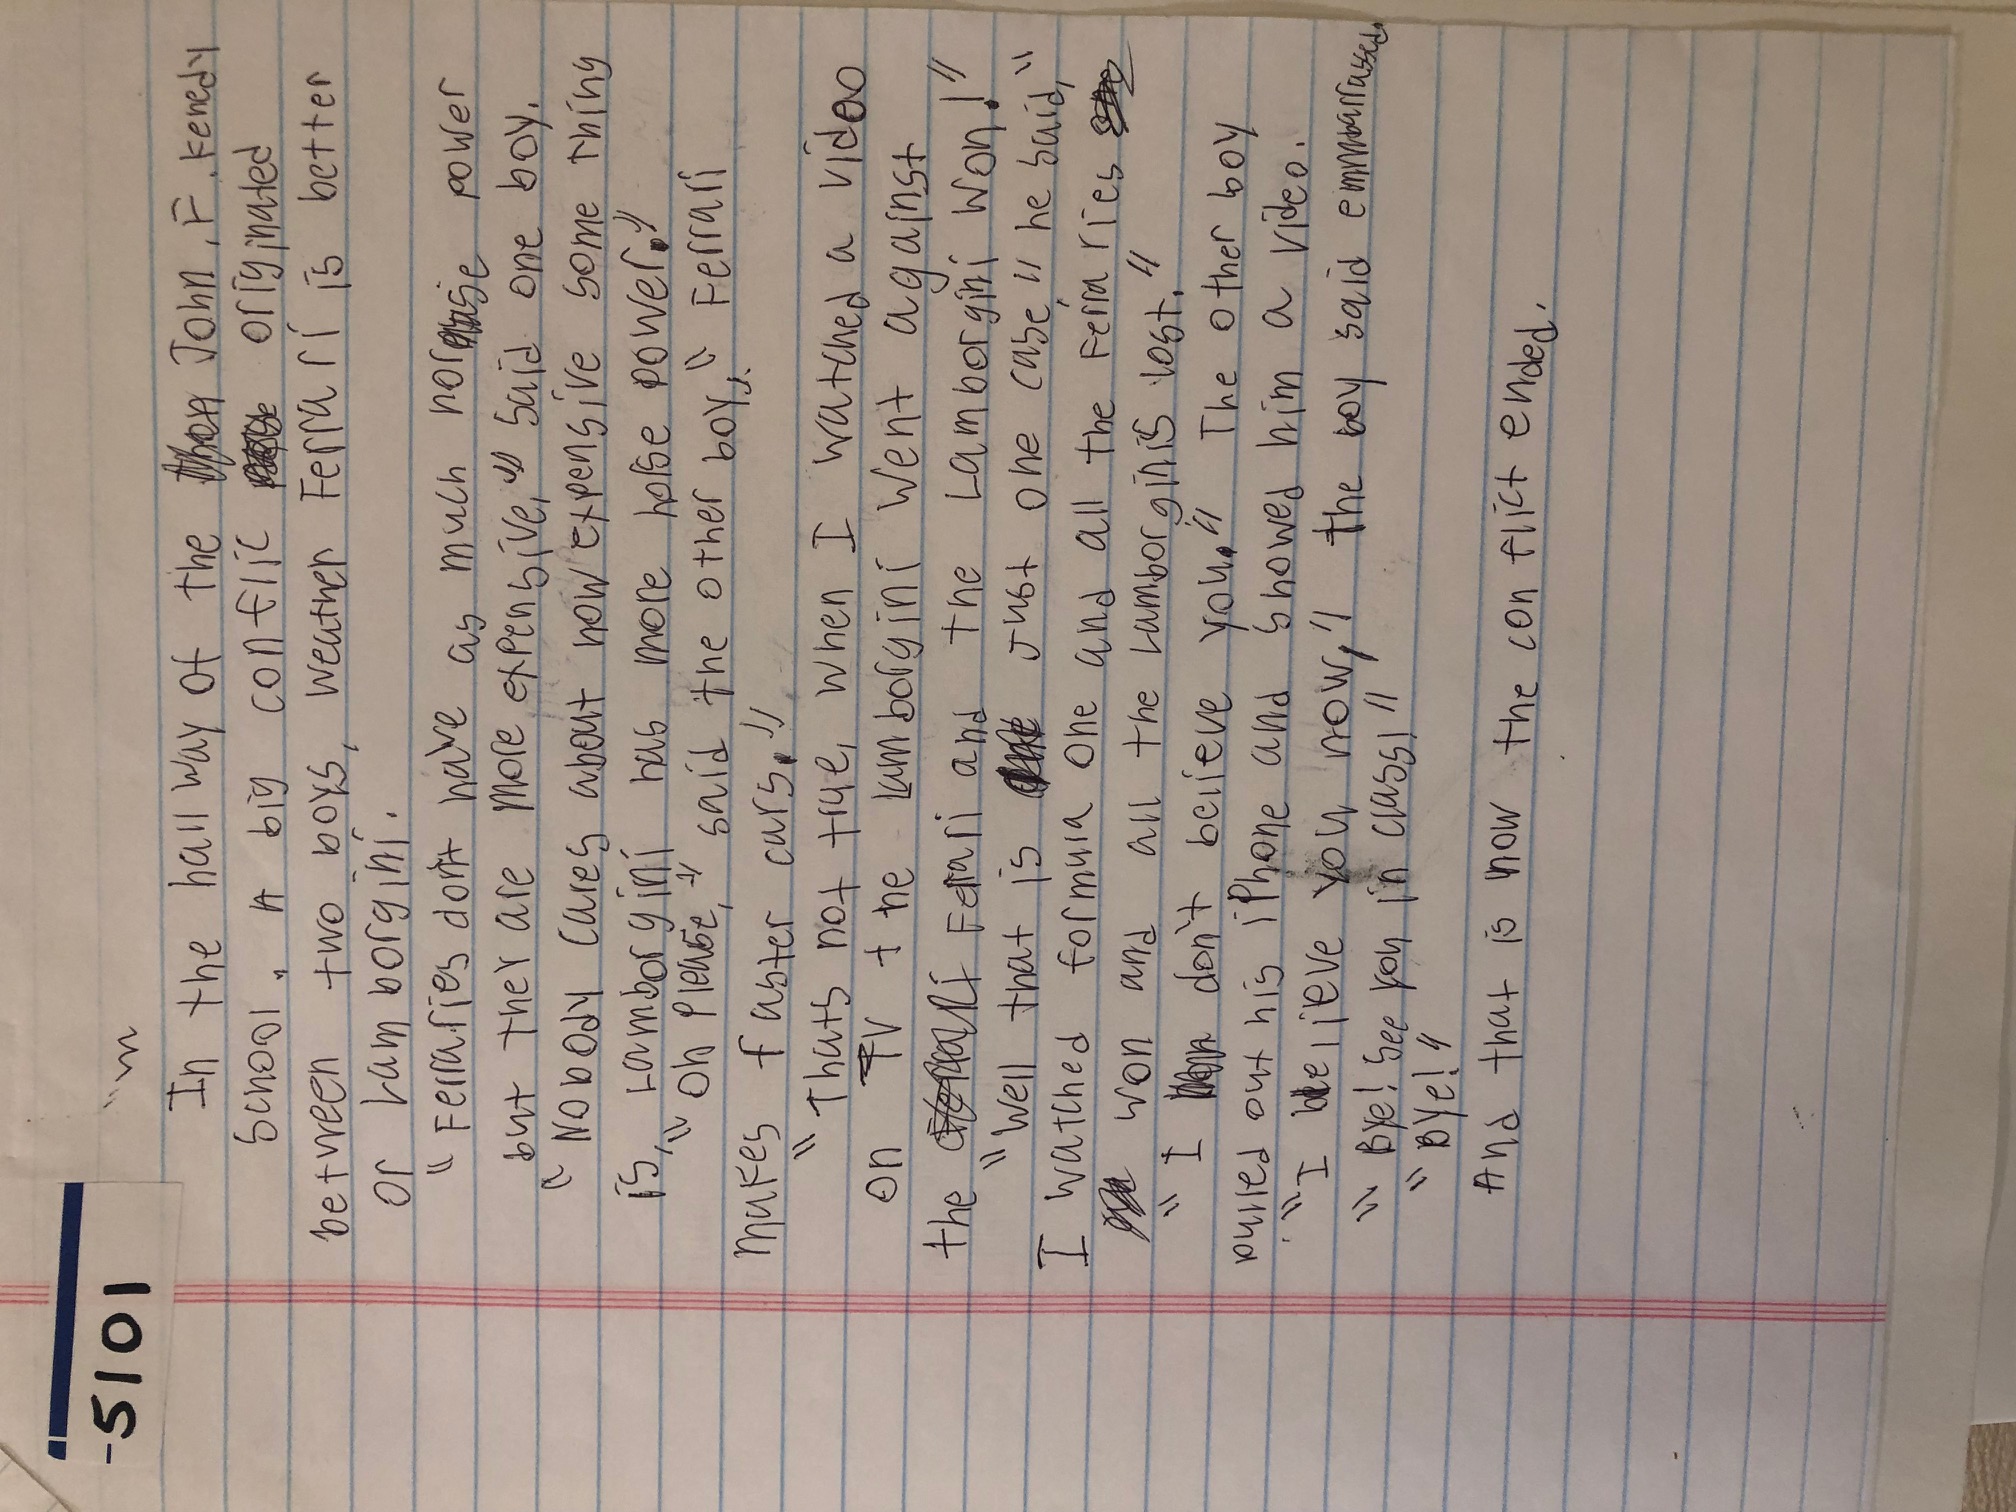 -5101
In the hallway of the John. F. Kenedy
School. A big conflic originated
between two boys, weather Ferrari is better
or Lamborgini.
"Ferraries don't have as much horse power
but they are more expensive," said one boy.
"Nobody cares about how expensive some thing
is, Lamborgini has more horse power."
"Oh Please," said the other boy, "Ferrari
makes faster cars."
"Thats not true, when I watched a video
on TV the Lamborgini went against
the Ferrari and the Lamborgini won!"
"Well that is just one case," he said, "
I watched formula one and all the Ferraries
won and all the Lamborginis lost."
"I don't believe you." The other boy
pulled out his iPhone and showed him a video.
"I believe you now," the boy said emmbarrassed.
"Bye! See you in class!"
"Bye!"
And that is how the conflict ended.